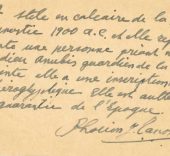 stèle en calcaire de la
nastie 1900 a.C. et elle rep
nte une personne priant
dieu anubis guardien de la
ante elle a une inscription
eroglyphique Elle est auth
guarantie de l'Epoque